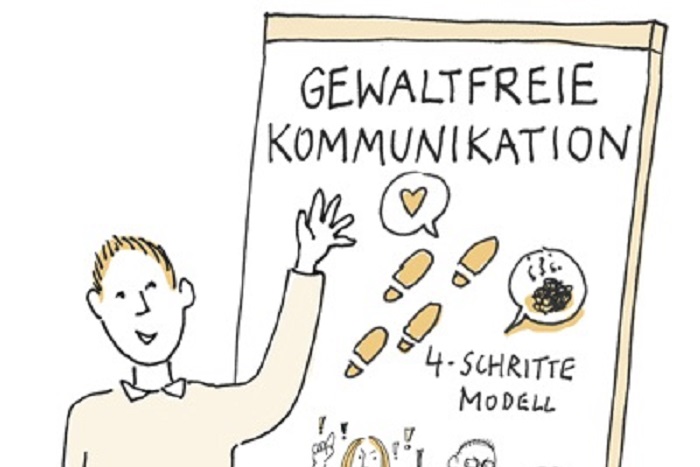 GEWALTFREIE
KOMMUNIKATION
4-SCHRITTE
MODELL